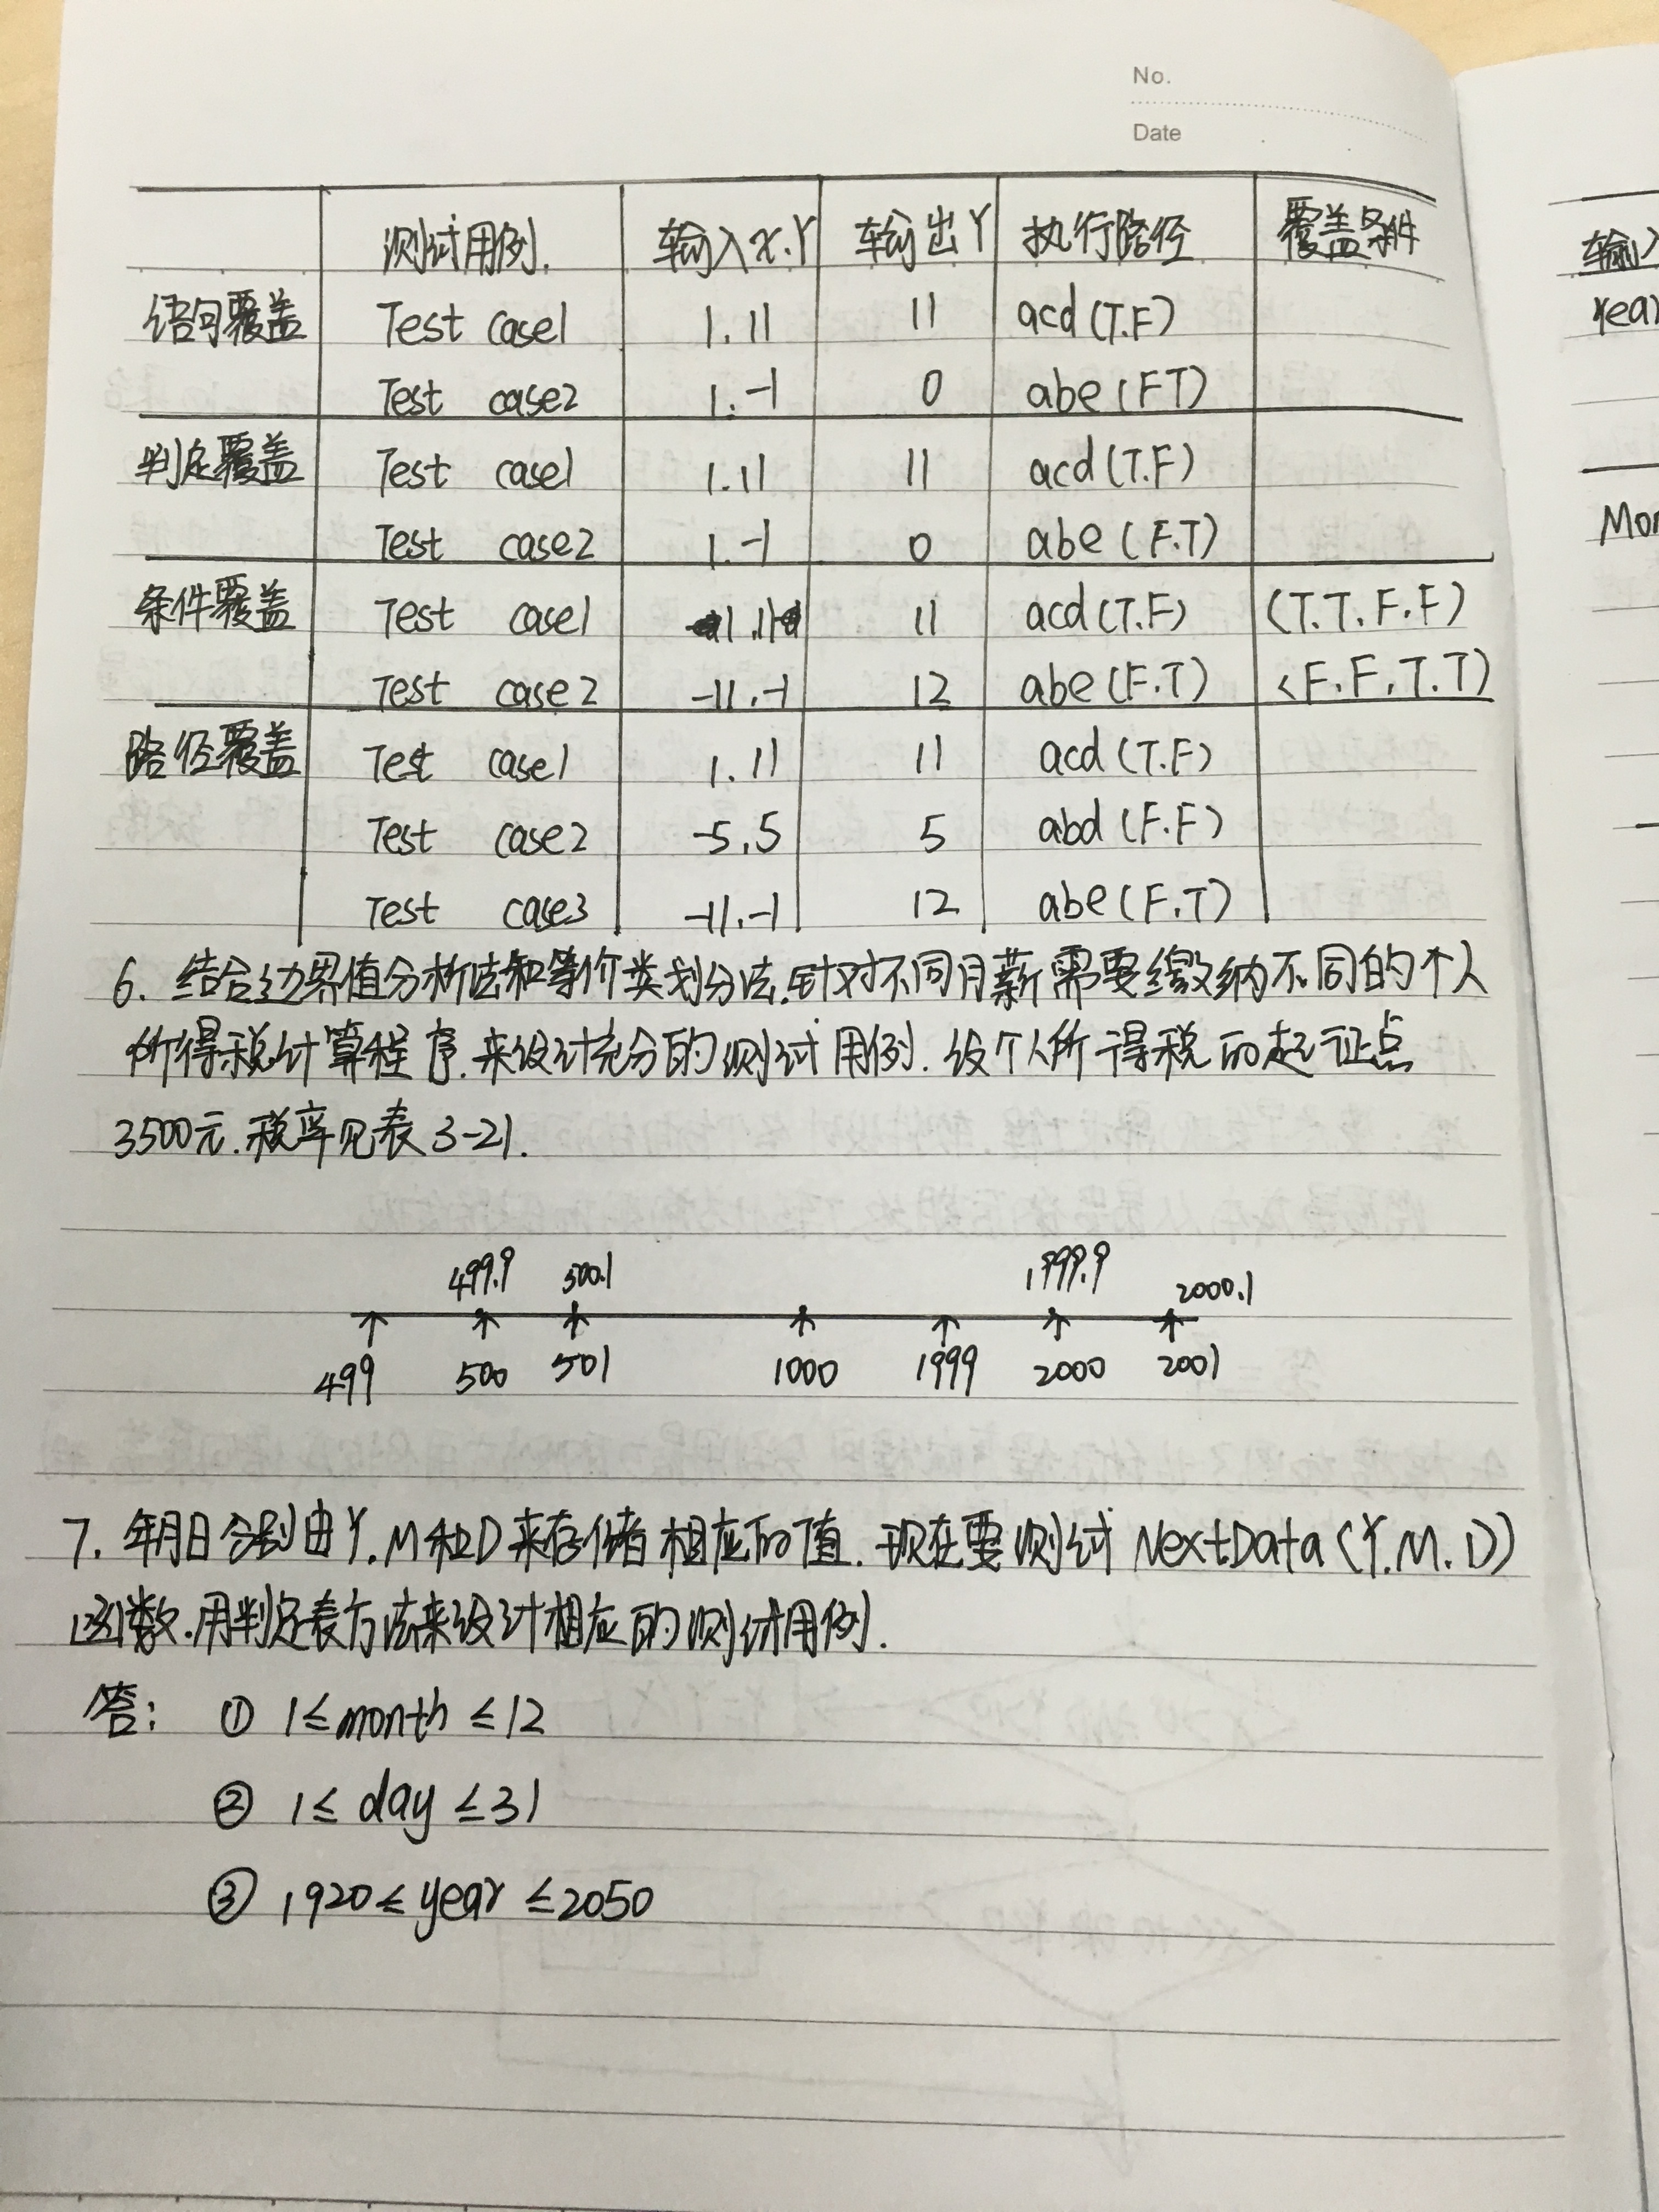 No.
Date
测试用例. 输入x.Y 输出Y 执行路径 覆盖条件
语句覆盖 Test case1 1.11 11 acd(T.F)
Test case2 1.-1 0 abe(FT)
判定覆盖 Test case1 1.11 11 acd(T.F)
Test case2 1.-1 0 abe(F.T)
条件覆盖 Test case1 1.11 11 acd(T.F) (T.T.F.F)
Test case2 -11.-1 12 abe(F.T) <F.F.T.T)
路径覆盖 Test case1 1.11 11 acd(T.F)
Test case2 -5.5 5 abd(F.F)
Test case3 -11.-1 12 abe(F.T)
6. 结合边界值分析法和等价类划分法.针对不同月薪需要缴纳不同的个人
所得税计算程序.来设计充分的测试用例.设个人所得税的起征点
3500元.税率见表3-21.
499.9 500.1 1999.9 2000.1
499 500 501 1000 1999 2000 2001
7. 年月日分别由Y.M和D来存储相应的值.现在要测试NextData(Y.M.D)
函数.用判定表方法来设计相应的测试用例.
答: ① 1≤month≤12
② 1≤day≤31
③ 1920≤year≤2050
输入
Year
Mon